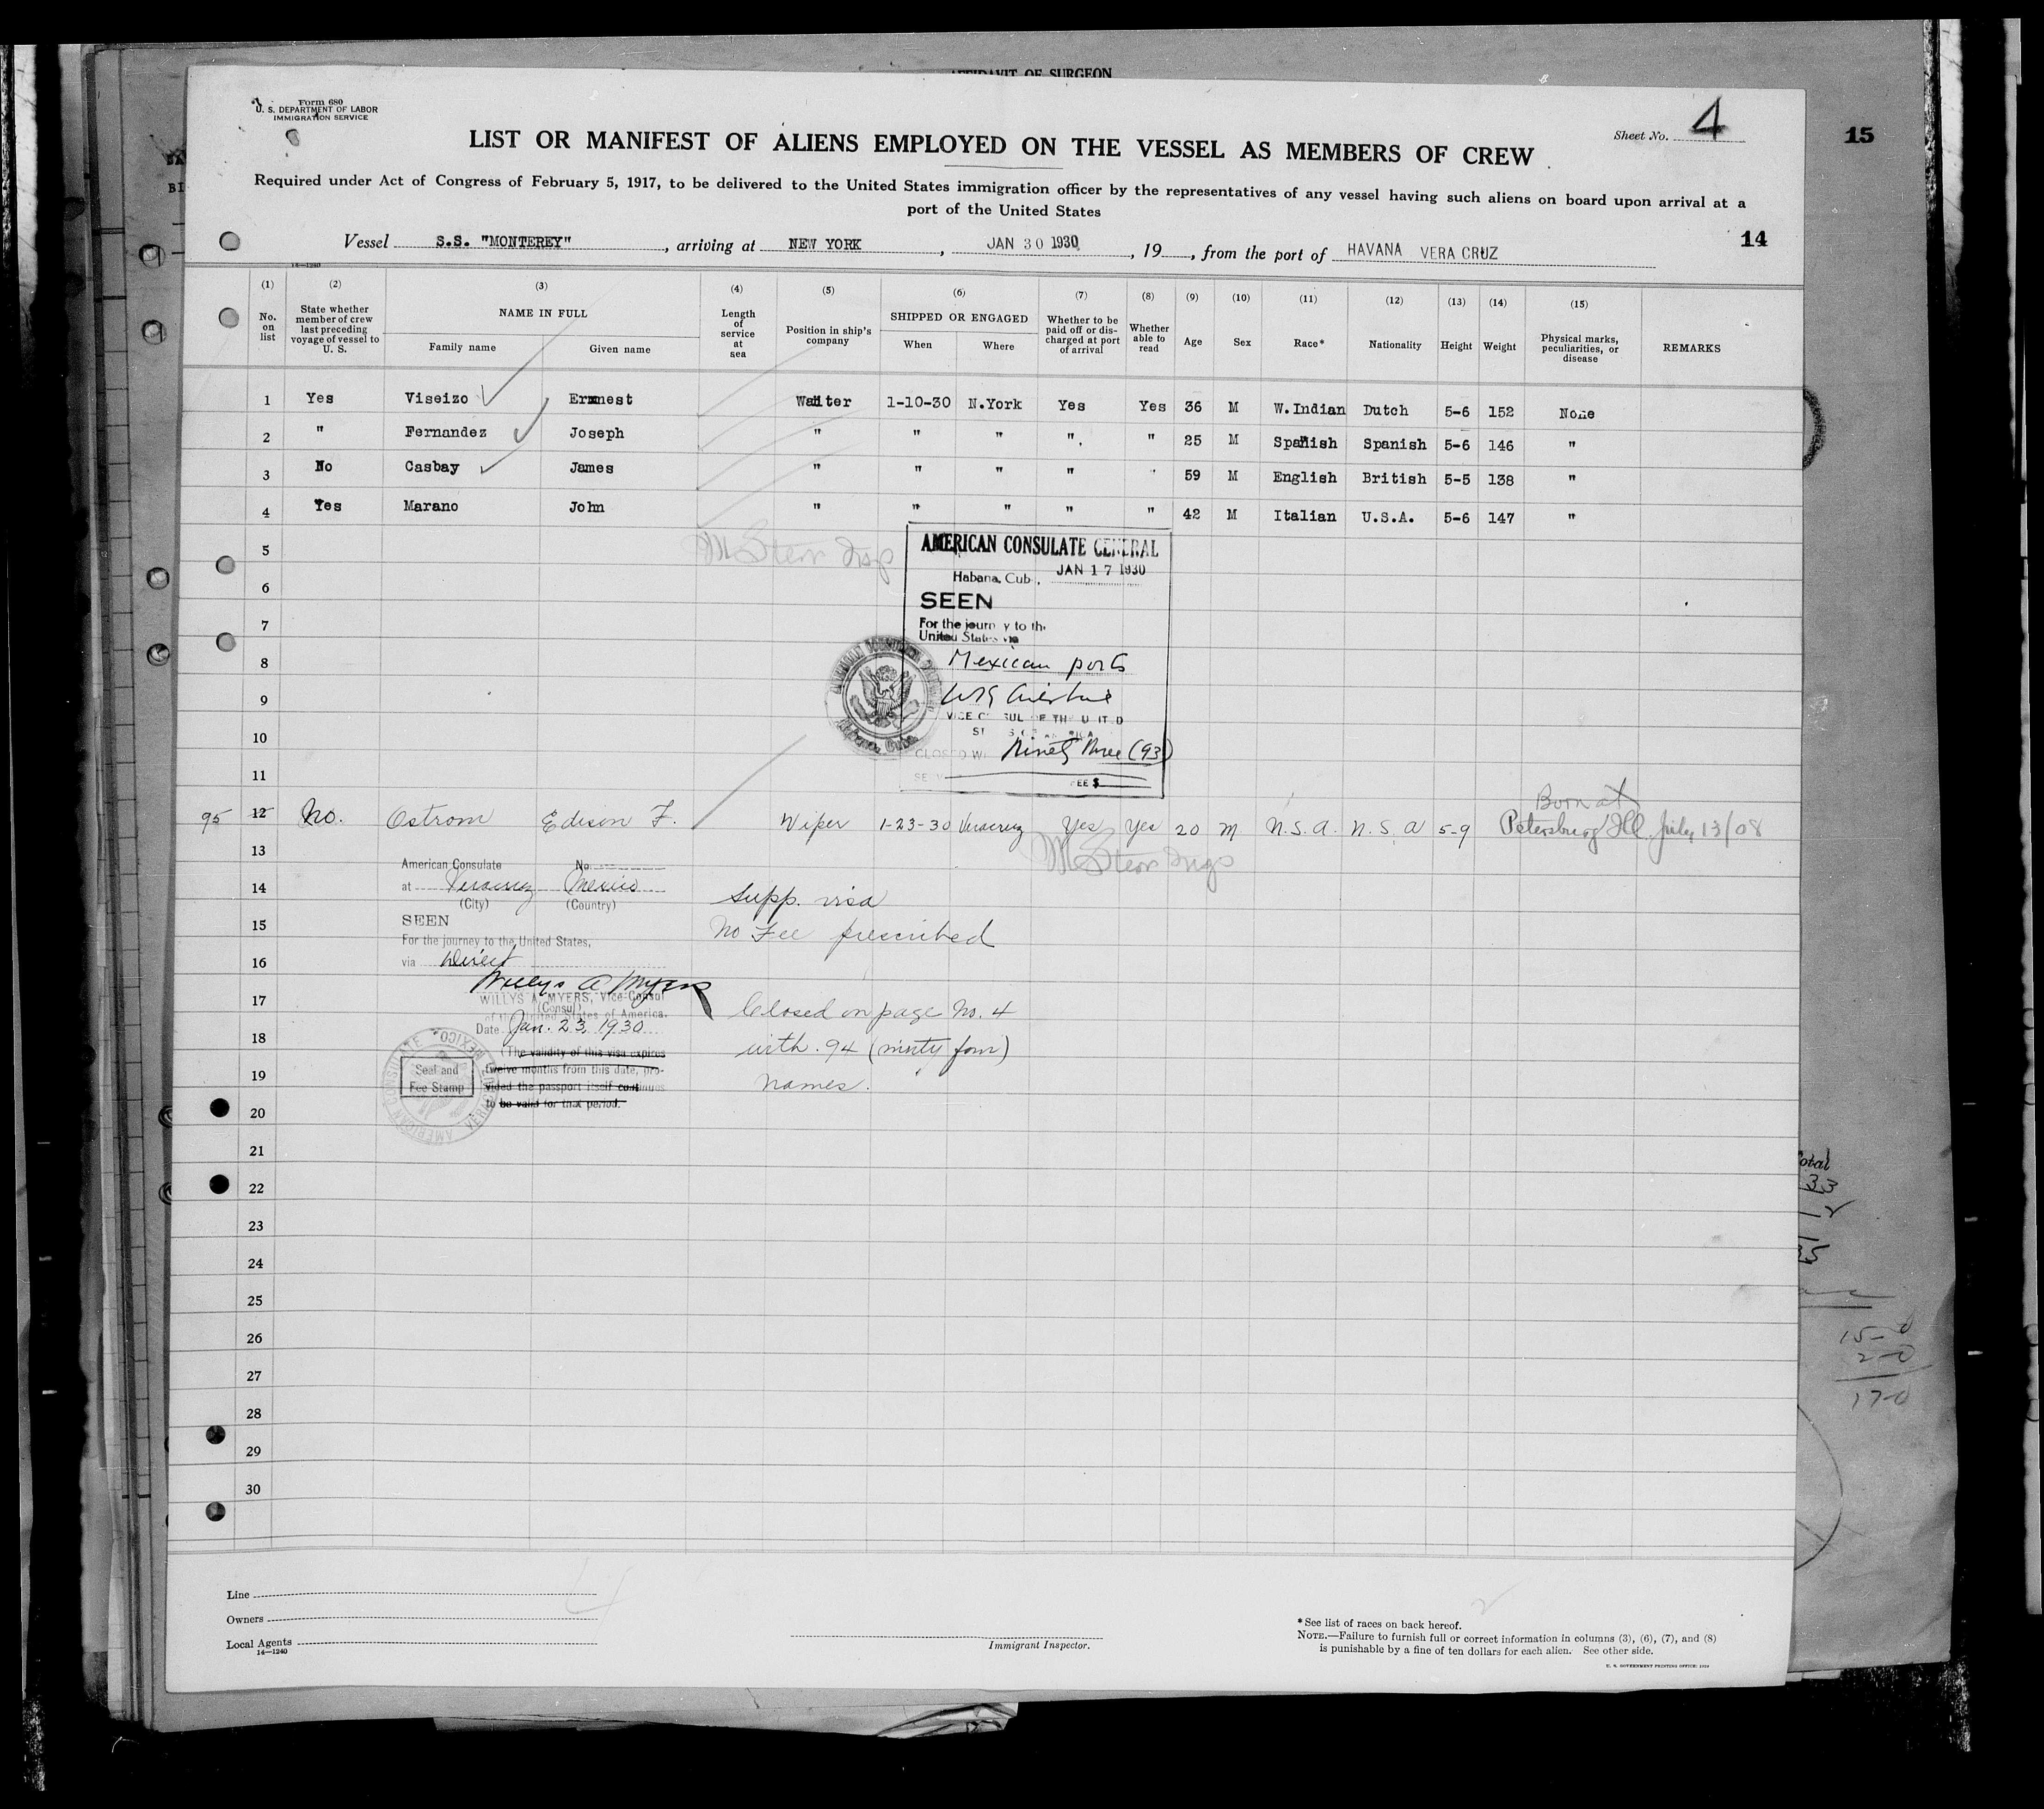 AFFIDAVIT OF SURGEON
Form 680
U. S. DEPARTMENT OF LABOR
IMMIGRATION SERVICE
Sheet No. 4
15
LIST OR MANIFEST OF ALIENS EMPLOYED ON THE VESSEL AS MEMBERS OF CREW
Required under Act of Congress of February 5, 1917, to be delivered to the United States immigration officer by the representatives of any vessel having such aliens on board upon arrival at a
port of the United States
14
Vessel S.S. "MONTEREY", arriving at NEW YORK, JAN 30 1930, 19, from the port of HAVANA VERA CRUZ
14—1240
(1) No. on list
(2) State whether member of crew last preceding voyage of vessel to U. S.
(3) NAME IN FULL
Family name Given name
(4) Length of service at sea
(5) Position in ship's company
(6) SHIPPED OR ENGAGED
When Where
(7) Whether to be paid off or discharged at port of arrival
(8) Whether able to read
(9) Age
(10) Sex
(11) Race*
(12) Nationality
(13) Height
(14) Weight
(15) Physical marks, peculiarities, or disease
REMARKS
1 Yes Viseizo Ernest Waiter 1-10-30 N.York Yes Yes 36 M W.Indian Dutch 5-6 152 None
2 " Fernandez Joseph " " " " " 25 M Spanish Spanish 5-6 146 "
3 No Casbay James " " " " " 59 M English British 5-5 138 "
4 Yes Marano John " " " " " 42 M Italian U.S.A. 5-6 147 "
5
6
7
8
9
10
11
M Stern Insp
AMERICAN CONSULATE GENERAL
Habana, Cuba, JAN 17 1930
SEEN
For the journey to the
United States via
Mexican ports
VICE CONSUL OF THE UNITED
STATES OF AMERICA
CLOSED WITH Ninety three (93)
FEE $
Born at
95 12 No. Ostrom Edison F. Wiper 1-23-30 Veracruz Yes Yes 20 M U.S.A. U.S.A 5-9 Petersburg Ill. July 13/08
M Stern Insp
13
14
15
16
17
18
19
20
21
22
23
24
25
26
27
28
29
30
American Consulate No.
at Veracruz Mexico
(City) (Country)
SEEN
For the journey to the United States,
via Direct
Willys A Myers
WILLYS A. MYERS, Vice-Consul
(Consul)
of the United States of America.
Date Jan. 23, 1930
(The validity of this visa expires
twelve months from this date, pro-
vided the passport itself continues
to be valid for that period.
Seal and
Fee Stamp
AMERICAN CONSULATE
MEXICO
Supp. visa
No Fee prescribed
Closed on page No. 4
with 94 (ninety four)
names.
Total
33
12
35
15-0
2-0
17-0
Line
Owners
Local Agents
14—1240
Immigrant Inspector.
*See list of races on back hereof.
NOTE.—Failure to furnish full or correct information in columns (3), (6), (7), and (8)
is punishable by a fine of ten dollars for each alien. See other side.